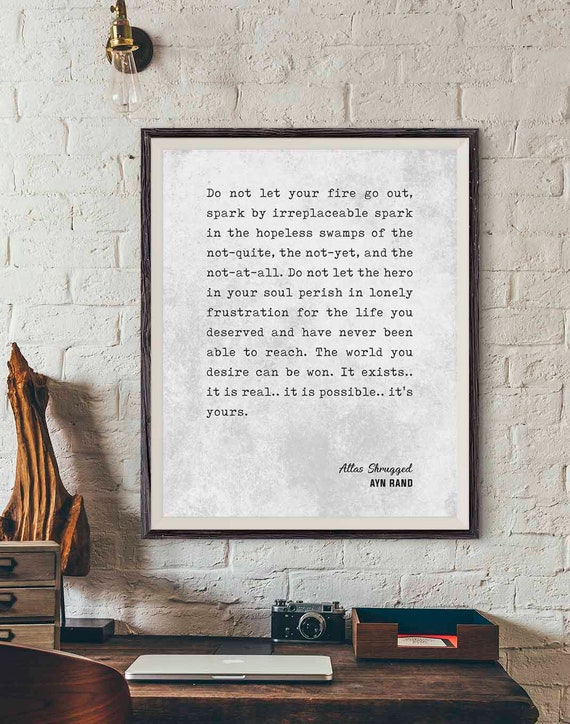 Do not let your fire go out,
spark by irreplaceable spark
in the hopeless swamps of the
not-quite, the not-yet, and the
not-at-all. Do not let the hero
in your soul perish in lonely
frustration for the life you
deserved and have never been
able to reach. The world you
desire can be won. It exists..
it is real.. it is possible.. it's
yours.
Atlas Shrugged
AYN RAND